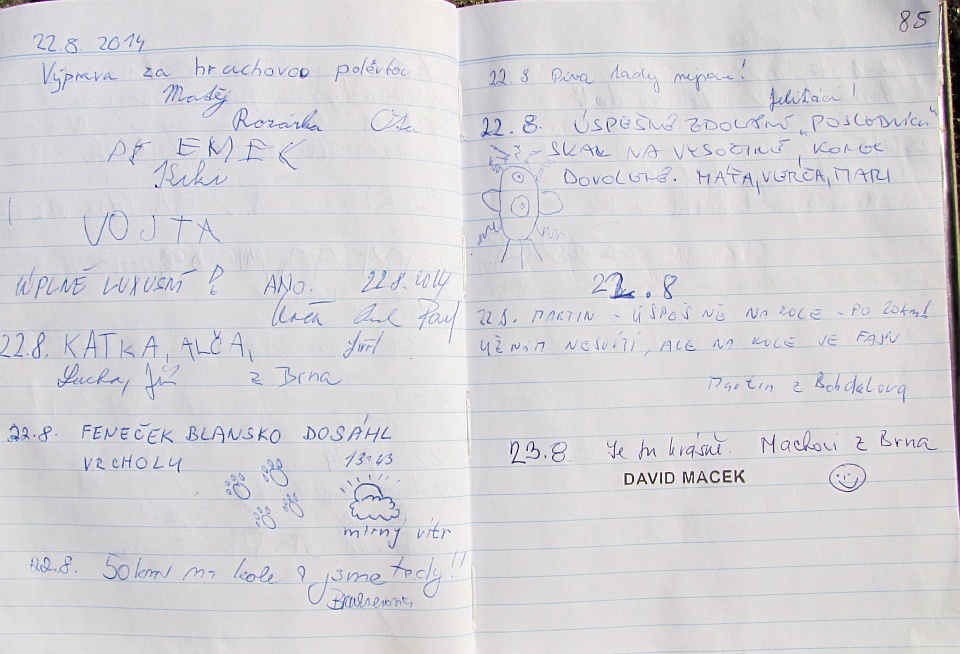 22.8. 2014
Výprava za hrachovou polévkou
Matěj
Rozárka
PŘEMEK
Kiki
VOJTA
ÚPLNĚ LUXUSNÍ
ANO. 22.8.2014
22.8. KATKA, ALČA,
z Brna
22.8. FENEČEK BLANSKO DOSÁHL
VRCHOLU 13:43
mírný vítr
22.8. 50km na kole a jsme tady!!
85
22 8 Piva tady nejsou!
22.8. ÚSPEŠNĚ ZDOLÁNÍ „POSLEDNÍCH“
SKAL NA VYSOČINĚ, KONEC
DOVOLENÉ. MÁŤA, VERČA, MARI
22.8
22.8. MARTIN - ÚSPEŠNĚ NA KOLE - PO 20km!
UŽ NÁM NESVÍTÍ, ALE NA KOLE VE
Martin z Bohdalova
23.8. Je tu krásně. Machovi z Brna
DAVID MACEK